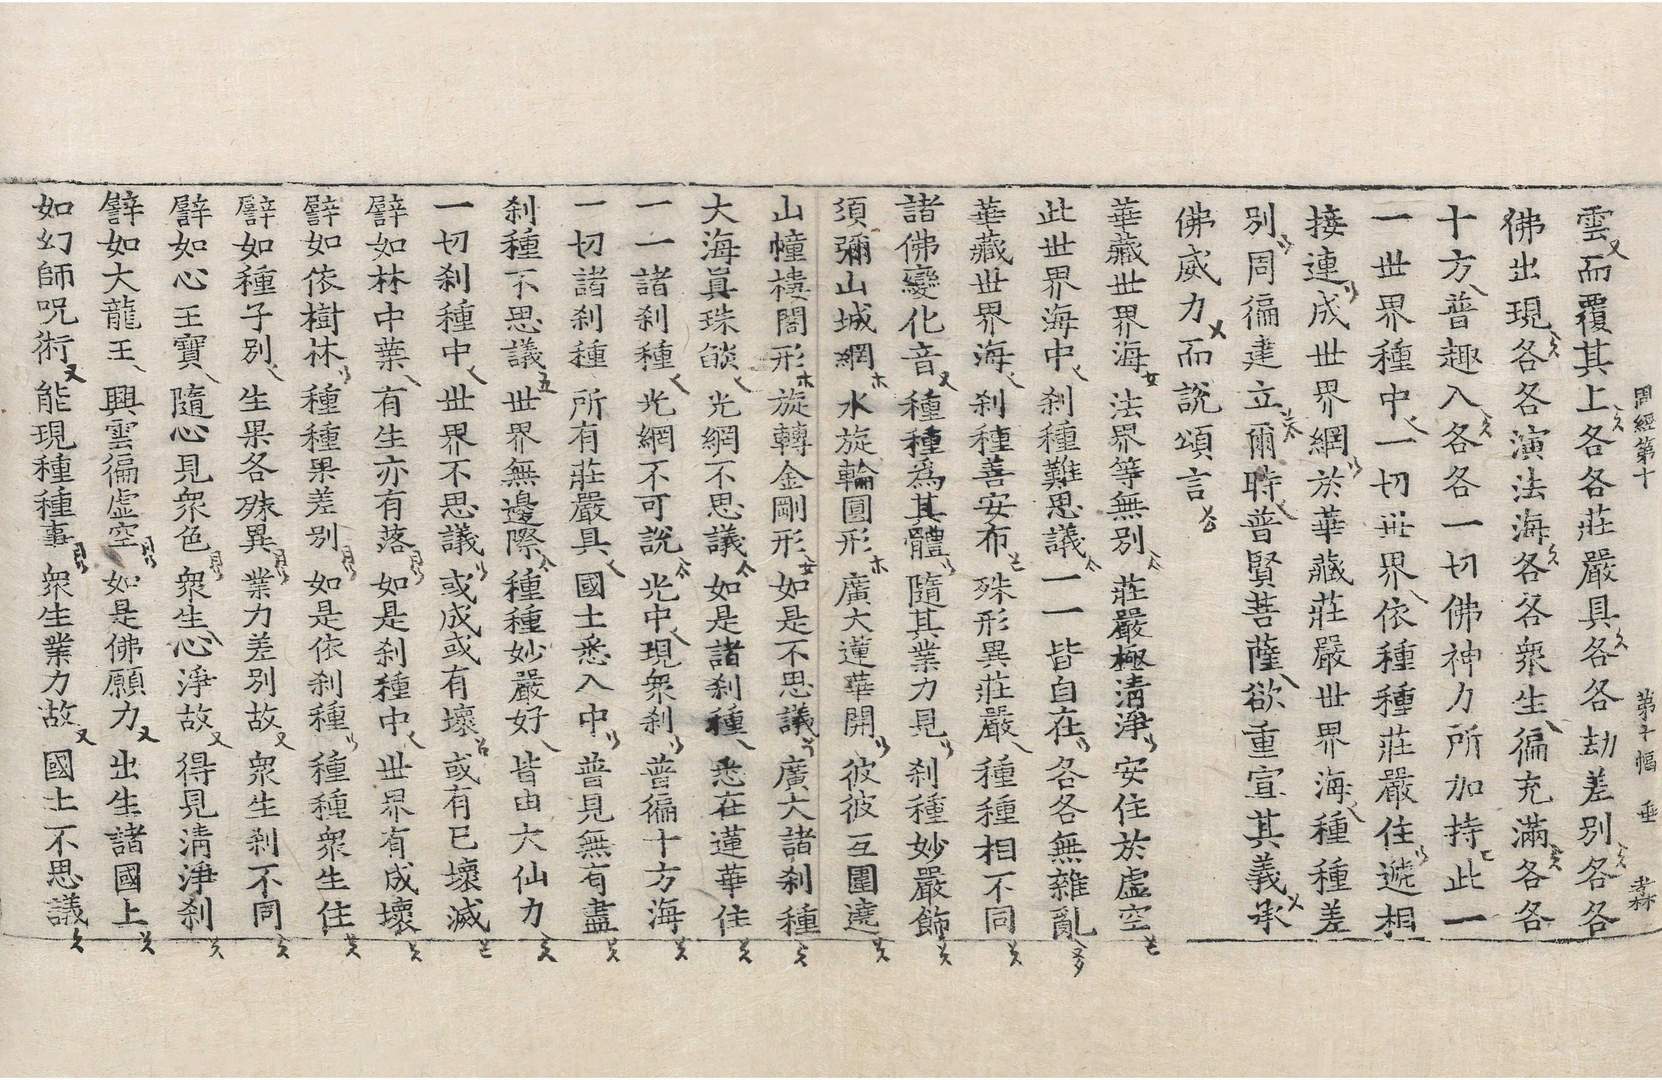 周經第十 第十幅 垂 孝林
雲而覆其上各各莊嚴具各各劫差別各各
佛出現各各演法海各各衆生徧充滿各各
十方普趣入各各一切佛神力所加持此一
一世界種中一切世界依種種莊嚴住遞相
接連成世界網於華藏莊嚴世界海種種差
別周徧建立爾時普賢菩薩欲重宣其義承
佛威力而說頌言
華藏世界海 法界等無別 莊嚴極清淨 安住於虛空
此世界海中 刹種難思議 一一皆自在 各各無雜亂
華藏世界海 刹種善安布 殊形異莊嚴 種種相不同
諸佛變化音 種種爲其體 隨其業力見 刹種妙嚴飾
須彌山城網 水旋輪圓形 廣大蓮華開 彼彼互圍遶
山幢樓閣形 旋轉金剛形 如是不思議 廣大諸刹種
大海眞珠𦦨 光網不思議 如是諸刹種 悉在蓮華住
一一諸刹種 光網不可說 光中現衆刹 普徧十方海
一切諸刹種 所有莊嚴具 國土悉入中 普見無有盡
刹種不思議 世界無邊際 種種妙嚴好 皆由大仙力
一切刹種中 世界不思議 或成或有壞 或有已壞滅
譬如林中葉 有生亦有落 如是刹種中 世界有成壞
譬如依樹林 種種果差別 如是依刹種 種種衆生住
譬如種子別 生果各殊異 業力差別故 衆生刹不同
譬如心王寶 隨心見衆色 衆生心淨故 得見清淨刹
譬如大龍王 興雲徧虛空 如是佛願力 出生諸國土
如幻師呪術 能現種種事 衆生業力故 國土不思議